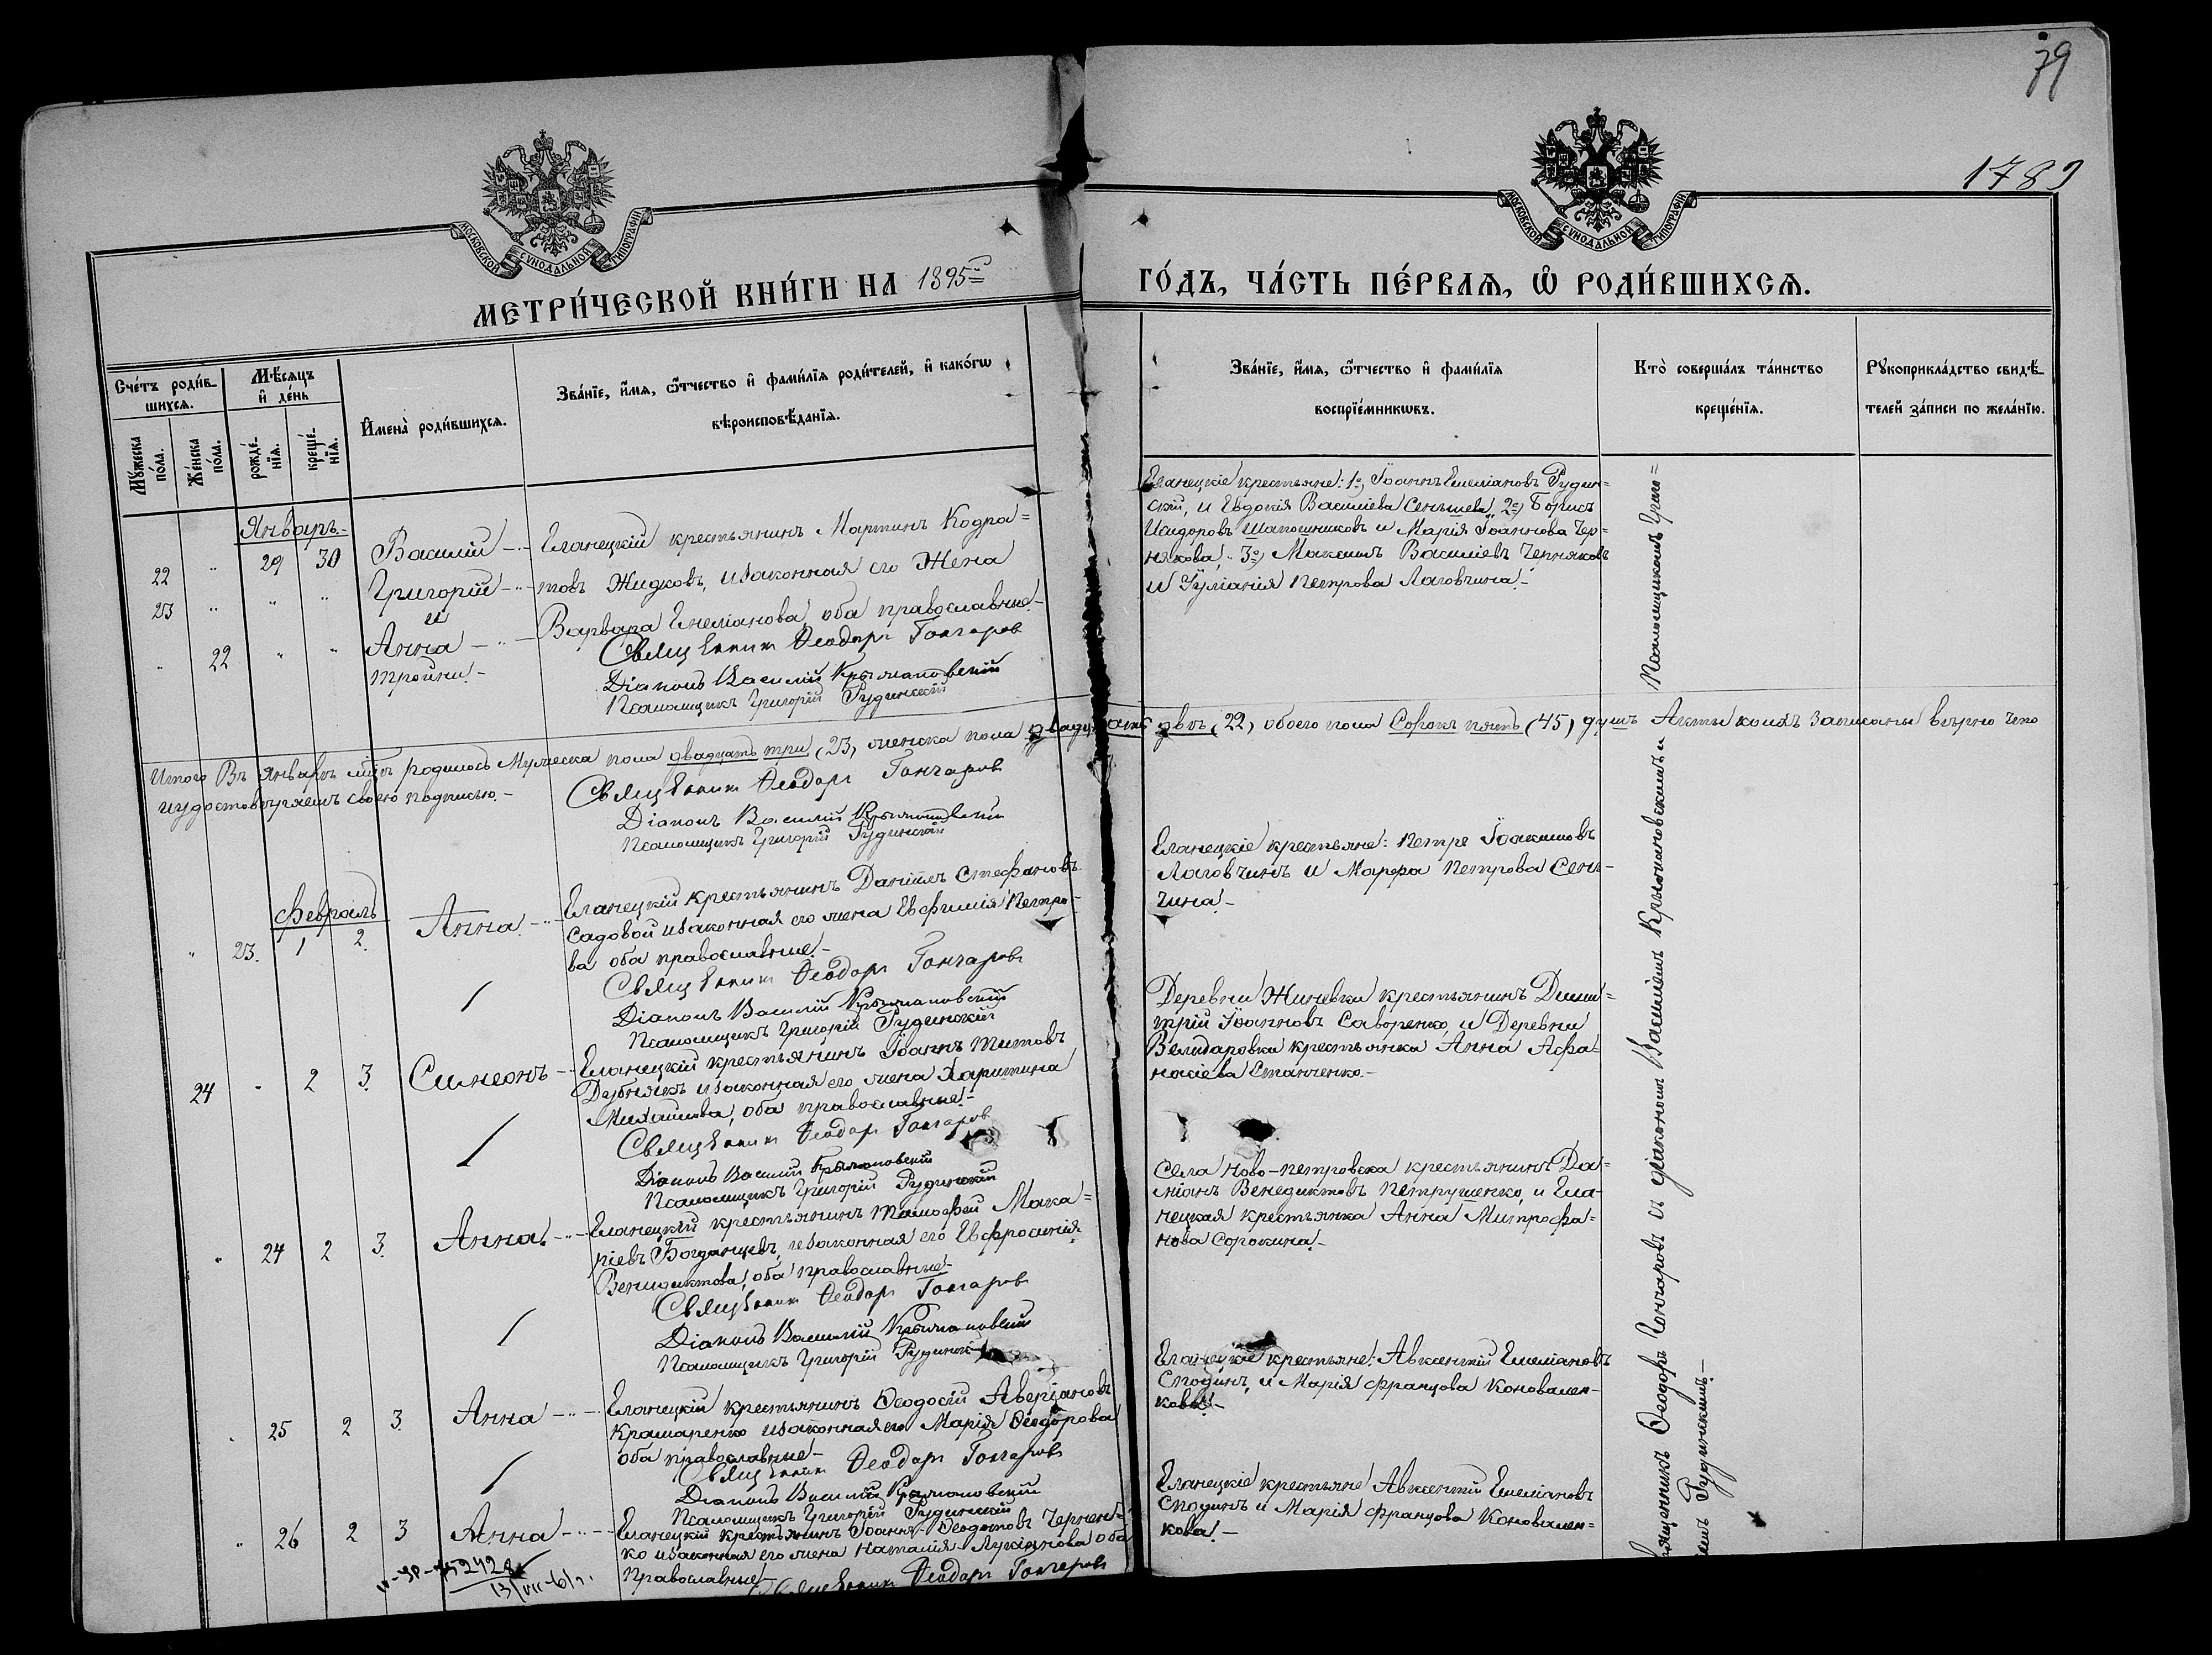 79
1789
МОСКОВСКОЙ СУНОДАЛЬНОЙ ТИПОГРАФІИ
МОСКОВСКОЙ СУНОДАЛЬНОЙ ТИПОГРАФІИ
МЕТРИ́ЧЕСКОЙ КНИ́ГИ НА 1895й ГО́ДЪ, ЧА́СТЬ ПЕ́РВАѦ, Ѽ РОДИ́ВШИХСѦ.
Сче́тъ роди́в-
шихсѧ.
Мѣ́сѧцъ
и҆ де́нь
Мꙋ́жеска
по́ла.
Же́нска
по́ла.
рожде́-
нїѧ.
креще́-
нїѧ.
И҆мена̀ роди́вшихсѧ.
Зва́нїе, и҆́мѧ, ѻ҆́тчество и҆ фами́лїѧ роди́телей, и҆ како́гѡ
вѣроисповѣ́данїѧ.
Зва́нїе, и҆́мѧ, ѻ҆́тчество и҆ фами́лїѧ
воспрїе́мникѡвъ.
Кто̀ соверша́лъ та́инство
креще́нїѧ.
Рꙋкоприкла́дство свидѣ́-
телей за́писи по жела́нїю.
Январь
22 " 29 30 Василій
23 " " " Григорій
и
" 22 " " Анна
тройни.
Еланецкій крестьянинъ Мартинъ Кодра=
товъ Жидковъ, и законная его Жена
Варвара Емеліанова, оба православные.
Священник Ѳеодоръ Гончаров
Діаконъ Василій Крыжановскій
Псаломщикъ Григорій Рудинскій
Еланецкіе крестьяне: 1е, Іоаннъ Емеліановъ Рудин=
скій, и Евдокія Василіева Сенышева, 2е, Борисъ
Исидоровъ Шапошниковъ и Марія Іоаннова Чер=
някова, 3е, Максимъ Василіевъ Черняковъ
и Іуліанія Петрова Лаговчина.
Итого Въ Январѣ мцѣ родилось Мужеска пола двадцать три (23), женска пола двадцать двѣ (22), обоего пола Сорокъ пять (45) душъ Акты коихъ записаны вѣрно что
и удостовѣряемъ своею подписью.
Священник Ѳеодоръ Гончаров
Діаконъ Василій Крыжановскій
Псаломщикъ Григорій Рудинскій
Февраль
" 23. 1 2. Анна
Еланецкій крестьянинъ Даніилъ Стефановъ
Садовой и законная его жена Евфимія Петро-
ва оба православные.
Священник Ѳеодоръ Гончаров
Діаконъ Василій Крыжановскій
Псаломщикъ Григорій Рудинскій
Еланецкіе крестьяне: Петръ Іоакимовъ
Лаговчинъ и Марѳа Петрова Сень-
чина.
24 " 2 3. Симеонъ
Еланецкій крестьянинъ Іоаннъ Титовъ
Дубнякъ и законная его жена Харитина
Михаилова, оба православные.
Священник Ѳеодоръ Гончаров
Діаконъ Василій Крыжановскій
Псаломщикъ Григорій Рудинскій
Деревни крестьянинъ Дими=
трій Іоанновъ Саворенко, и Деревни
Велидаровки крестьянка Анна Афа=
насіева Станченко.
" 24 2 3. Анна
Еланецкій крестьянинъ Тимоѳей Мака=
ріевъ Богданцевъ, и законная его Евфросинія
Венидиктова, оба православные.
Священник Ѳеодоръ Гончаров
Діаконъ Василій Крыжановскій
Псаломщикъ Григорій Рудинскій
Села Ново-Петровска крестьянинъ Да=
міанъ Венедиктовъ Петрушенко, и Ела-
нецкая крестьянка Анна Митрофа=
нова Сорокина.
" 25 2 3. Анна
Еланецкій крестьянинъ Ѳеодосій Аверіановъ
Крамаренко и законная его Марія Ѳеодорова
оба православные
Священник Ѳеодоръ Гончаров
Діаконъ Василій Крыжановскій
Псаломщикъ Григорій Рудинскій
Еланецкіе крестьяне: Авксентій Емеліановъ
Сподинъ, и Марія Францова Коновален-
кова.
" 26 2 3 Анна
Еланецкій крестьянинъ Іоаннъ Ѳеодотовъ Чернен-
ко и законная его жена Наталія Лукіанова оба
Православные
Священник Ѳеодоръ Гончаровъ
Еланецкіе крестьяне Авксентій Емеліановъ
Сподинъ и Марія Францова Коновален=
кова.
Священникъ Ѳеодоръ Гончаровъ съ діакономъ Василіемъ Крыжановскимъ и Псаломщикомъ Григо=
ріемъ Рудинскимъ.